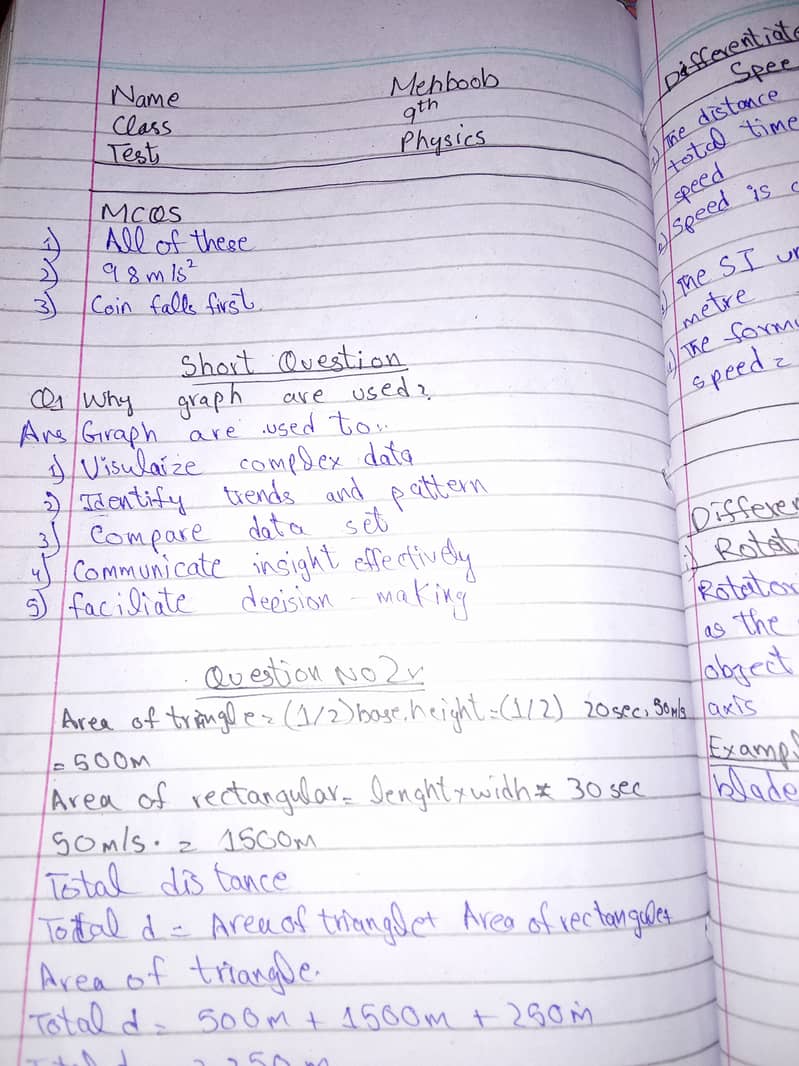 Name Mehboob
Class 9th
Test Physics
MCQS
1) All of these
2) 98 m/s²
3) Coin falls first.
Short Question
Q1 Why graph are used?
Ans Graph are used to...
1) Visulaize complex data
2) Identify trends and pattern
3) Compare data set
4) Communicate insight effectively
5) faciliate decision - making
Question No 2
Area of triangle = (1/2) base.height = (1/2) 20sec, 50m/s
= 500m
Area of rectangular = lenght × widh * 30 sec
50m/s. = 1500m
Total distance
Total d = Area of triangle + Area of rectangle +
Area of triangle.
Total d = 500m + 1500m + 250m
Differentiate
Spee
1) The distance
total time
speed
2) Speed is
3) The SI un
metre
4) The formu
speed =
Differen
i) Rotat
Rotator
as the
object
axis
Exampl
blade